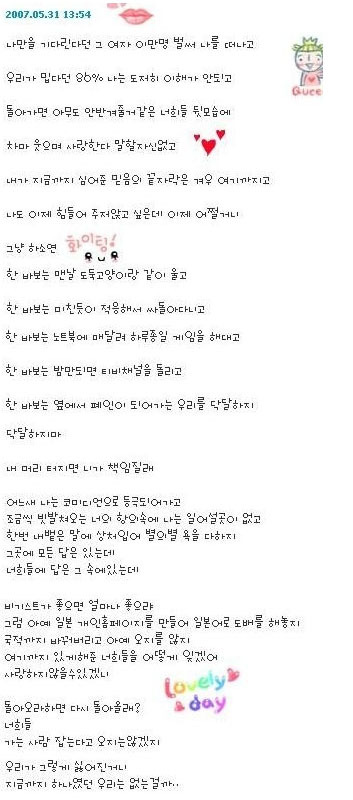 2007.05.31 13:54
나만을 기다린다던 그 여자 이만명 벌써 나를 떠나고
Queen
우리가 밉다던 86% 나는 도저히 이해가 안되고
돌아가면 아무도 안반겨줄거같은 너희들 뒷모습에
차마 웃으며 사랑한다 말할자신없고
내가 지금까지 심어준 믿음의 끝자락은 겨우 여기까지고
나도 이제 힘들어 주저앉고 싶은데 이제 어쩔거니
그냥 하소연 화이팅!
한 바보는 맨날 도둑고양이랑 같이 울고
한 바보는 미친듯이 적응해서 싸돌아다니고
한 바보는 노트북에 매달려 하루종일 게임을 해대고
한 바보는 밤만되면 티비채널을 돌리고
한 바보는 옆에서 폐인이 되어가는 우리를 닥달하지
닥달하지마
내 머리 터지면 니가 책임질래
어느새 나는 코미디언으로 등극되어가고
조금씩 빗발쳐오는 너의 항의속에 나는 일어설곳이 없고
한번 내뱉은 말에 상처입어 별의별 욕을 다하지
그곳에 모든 답은 있는데
너희들에 답은 그 속에있는데
비기스트가 좋으면 얼마나 좋으랴
그럼 아예 일본 개인홈페이지를 만들어 일본어로 도배를 해놓지
국적까지 바꿔버리고 아예 오지를 않지
여기까지 있게해준 너희들을 어떻게 잊겠어
사랑하지않을수있겠니
Lovely day
돌아오라하면 다시 돌아올래?
너희들
가는 사람 잡는다고 오지는않겠지
우리가 그렇게 싫어진거니
지금까지 하나였던 우리는 없는걸까..